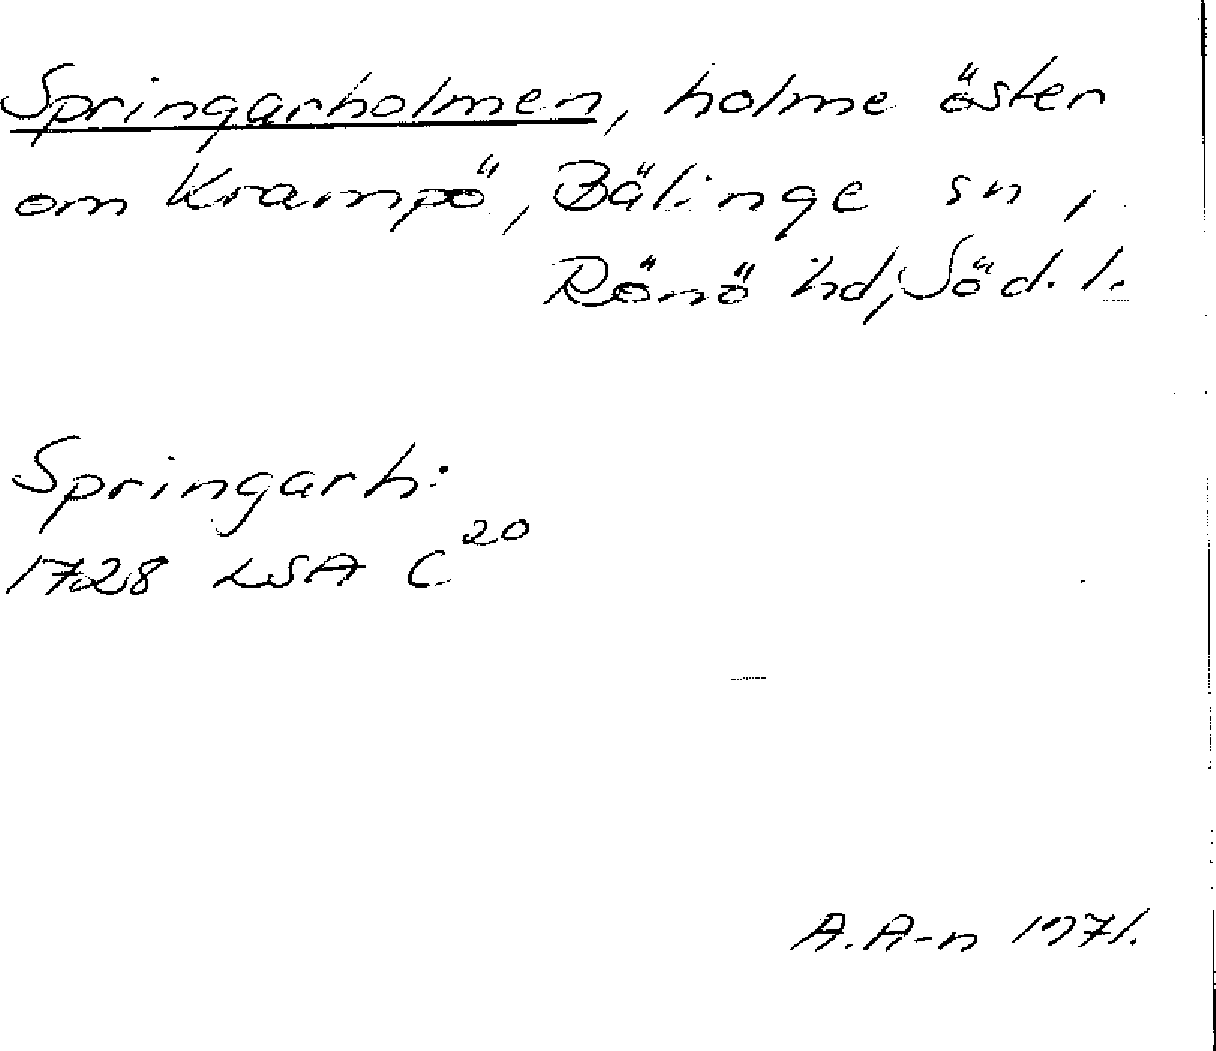 Springarholmen, holme öster
om Krampö, Bälinge sn,
Rönö hd, Söd. l.
Springarh:
1728 LSA C20
A. A-n 1971.